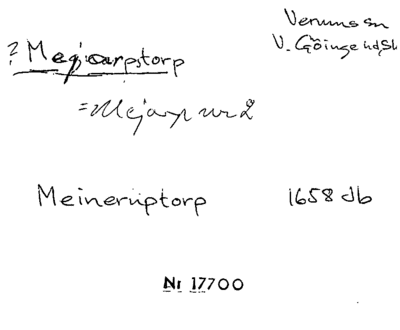 Verums sn
V. Göinge hd, Sk
? Mejarpstorp
= Mejarp nr 2
Meineruptorp 1658 Jb
Nr 17700